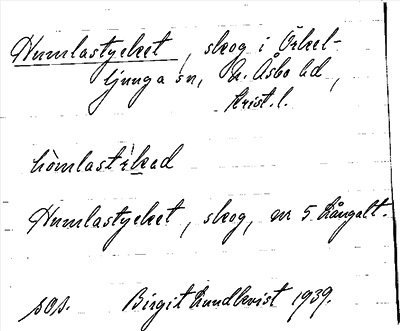 Humlastycket, skog i Örkel-
ljunga sn, N. Åsbo hd,
Krist. l.
hòmlast²kad
Humlastycket, skog, nr 5 Långalt.
sos. Birgit Lundkvist 1939.